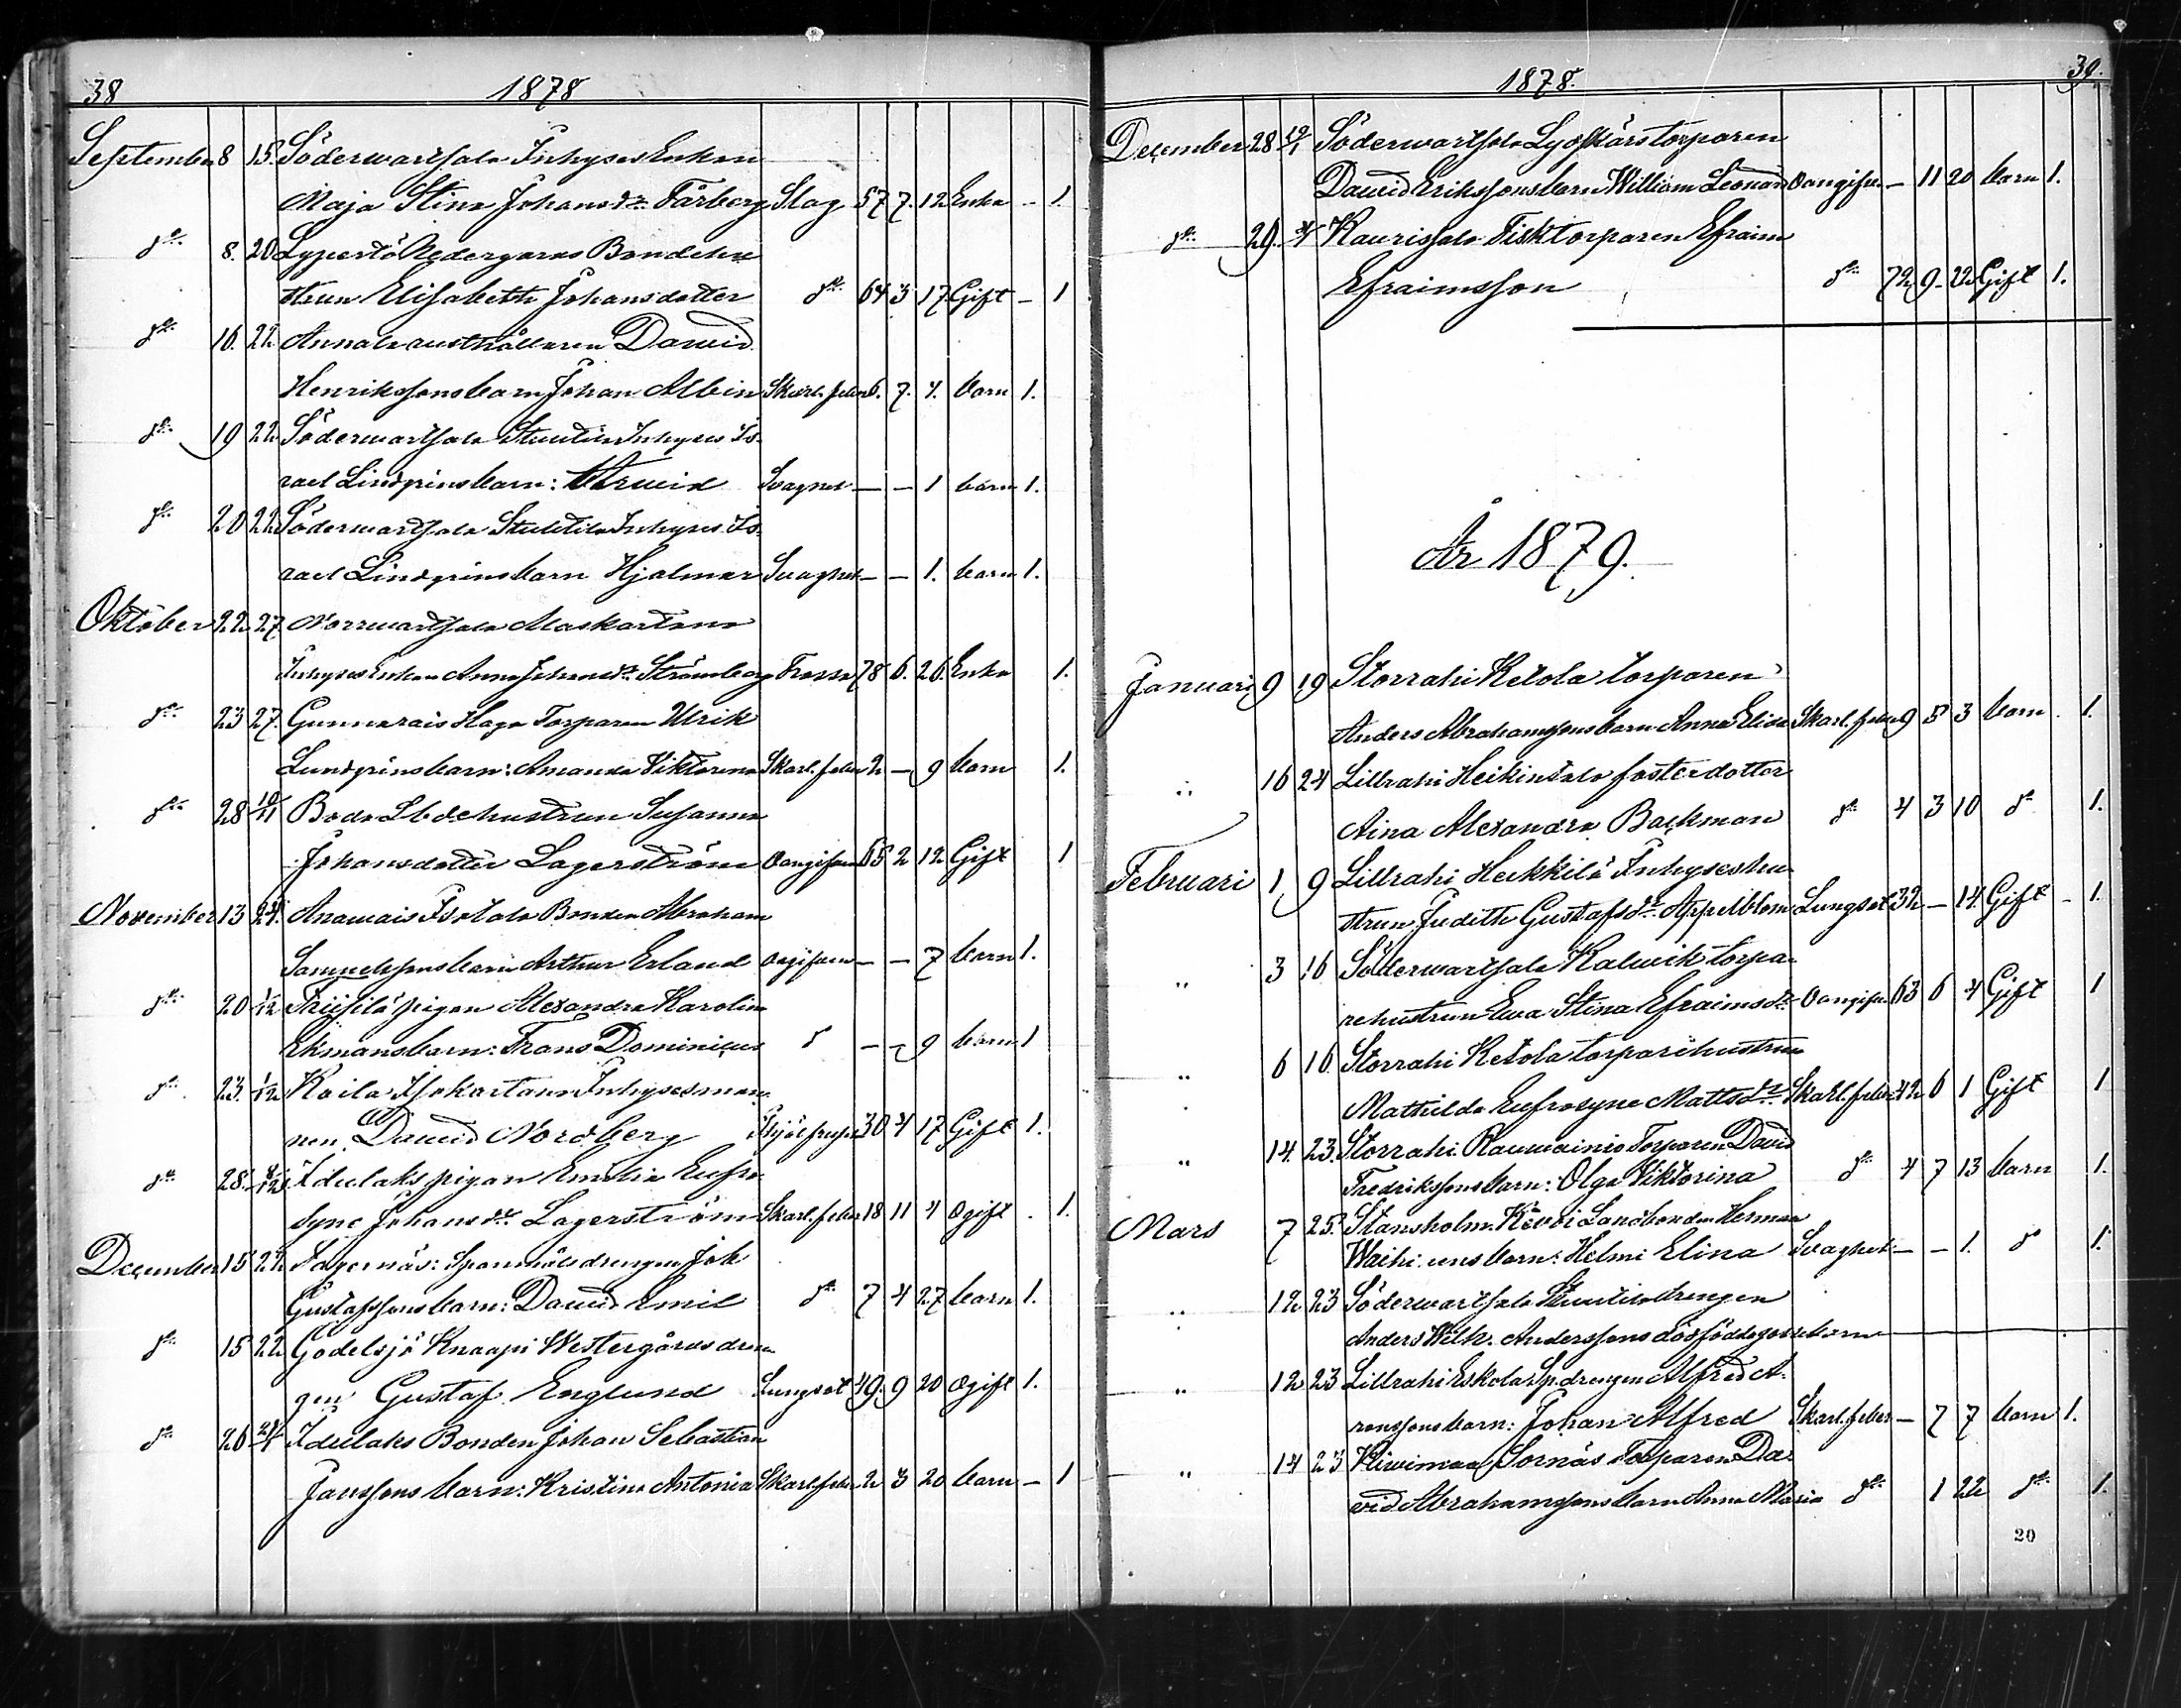 38
1878
September 8 15. Söderwartsala Inhyses Enkan
Maja Stina Johansdr Färberg Slag 57 7. 12 Enka - 1.
do 8. 20 Lypertö Nedergårds Bondehu
strun Elisabeth Johansdotter do 64 3 17 Gift - 1
do 16. 22 Annala austhållaren Dawid
Henrikssons barn Johan Albin Skarl. feber 6. 7. 4. barn 1.
do 19 22 Söderwartsala Inhyses Is-
rael Lindgrins barn: Arwid Svaghet - - 1 barn 1.
do 20 22 Söderwartsala Inhyses Is-
rael Lindgrins barn Hjalmar Svaghet - - 1. barn 1.
Oktober 22 27. Norrwartsala
Inhyses Enkan Anna Johansdr Strömberg Frossa 78 6. 26. Enka 1.
do 23 27. Gunnarais Haga Torparen Ulrik
Lundgrins barn: Amanda Viktorina Skarl. feber 2 - 9 barn 1.
do 28 10/11 Susanna
Johansdotter Lagerström Oangifven 65 2 12 Gift 1
November 13 24. Anawais Isotalo Bonden Abraham
Samuelssons barn Arthur Erland Oangifven - - 7 barn 1.
do 20 1/12 pigan Alexandra Karolin
Ekmans barn: Frans Dominicus d - - 9 barn 1
do 23. 1/12 Kaila Inhysesman
nen Dawid Nordberg 30 4 17 Gift 1.
do 28. 8/12 Idulaks pigan Emilia Eufro
syne Johansdr Lagerström Skarl. feber 18 11 4 Ogift . 1.
December 15 22 Fagernäs: Spanmålsdrengen Joh
Gustafssons barn: Dawid Emil do 7 4 27 barn 1.
do 15 22 Godelsjö Knaapi Westergårds dren
gen Gustaf Englund Lungsot 49. 9 20 Ogift 1.
do 26 Idulaks Bonden Johan Sebastian
Janssons barn: Kristina Antonia Skarl. feber 2 3 20 barn - 1
1878.
39.
December 28 Söderwartsala torparen
Dawid Erikssons barn William Leonard Oangifve. - 11 20 barn 1.
do 29. Kaurissalo Fisktorparen Efraim
Efraimsson do 72 9 - 22 Gift 1.
År 1879.
Januari 9 19 Storrahi Ketola torparen
Anders Abrahamssons barn Anna Elisa Skarl. feber 9 5 3 barn . 1.
" 16 24 Lillrahi Heikintalo fosterdotter
Aina Alexandra Backman do 4 3 10 do 1.
Februari 1 9 Lillrahi Heikkilä Inhyseshu
strun Judith Gustafsdr Appelblom Lungsot 32 - 14. Gift - 1.
" 3 16 Söderwartsala Kalwik torpa-
rehustrun Ewa Stina Efraimsdr Oangifve. 63 6 4 Gift 1
" 6 16 Storrahi Ketola torparehustrun
Mathilda Eufrosyne Mattsdr Skarl. feber 42 6 1 Gift 1
" 14. 23. Storrahi Torparen David
Fredrikssons barn: Olga Viktorina do 4 7 13 barn 1.
Mars 7 25. Landbonden Herman
barn: Helmi Elina Svaghet - - 1. do 1.
" 12 23 Söderwartsala drengen
Anders Wilh. Anderssons dödfödda gossebarn
" 12 23 Lillrahi Eskola Sp.drengen Alfred A-
ronssons barn: Johan Alfred Skarl. feber - 7 7 barn 1.
" 14 23 Kiwimaa Sornäs Torparen Da
vid Abrahamssons barn Anna Maria do 1 22 do 1.
20